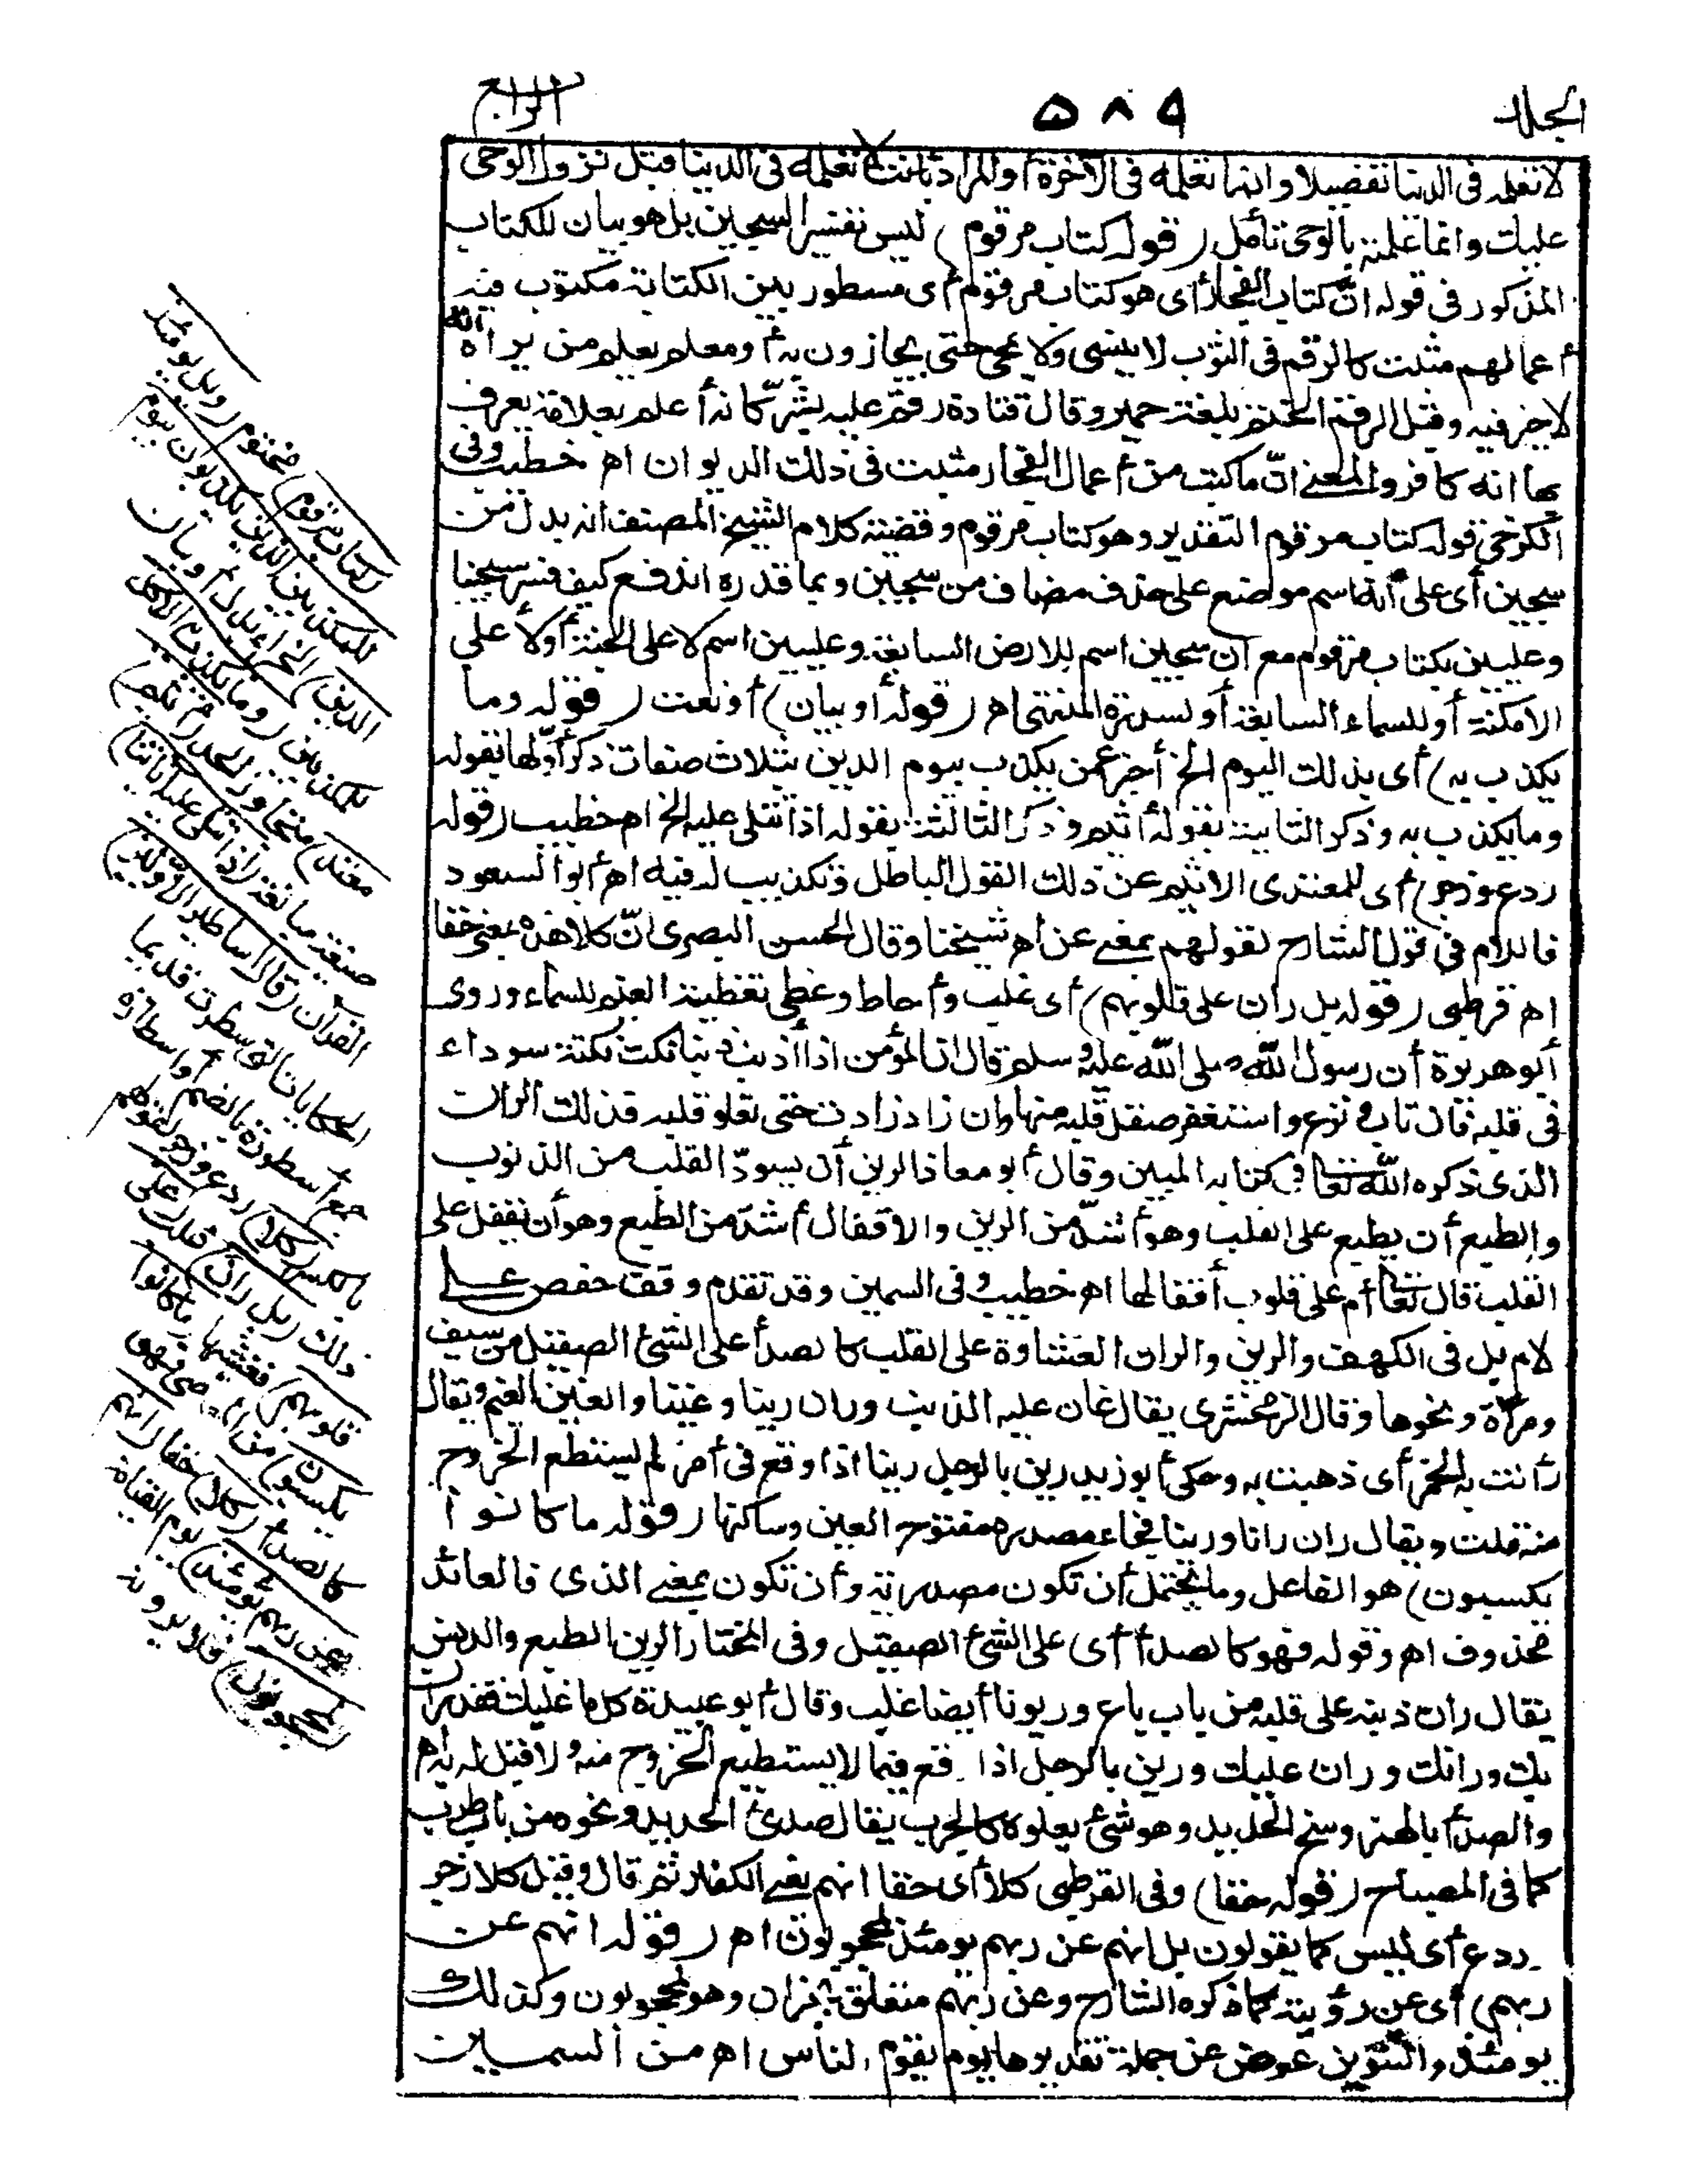 المجلد
٥٨٩
الرابع
لا تعلمه فى الدنيا تفصيلا وانما تعلمه فى الآخرة أو المراد بأنت لا تعلمه فى الدنيا قبل نزول الوحى
عليك وانما علمته بالوحى تأمل (قوله كتاب مرقوم) ليس تفسير السجين بل هو بيان للكتاب
المذكور فى قوله انّ كتاب الفجار أى هو كتاب مرقوم أى مسطور بين الكتابة مكتوب فيه
أعمالهم مثبت كالرقم فى الثوب لا ينسى ولا يمحى حتى يجازون به أو معلم يعلم من يراه انه
لا خير فيه وقيل الرقم الختم بلغة حمير وقال قتادة رقم عليه بشرّ كانه أعلم بعلامة يعرف
بها انه كافر والمعنى انّ ما كتب من أعمال الفجار مثبت فى ذلك الديوان اهـ خطيب وفى
الكرخى قوله كتاب مرقوم التقدير وهو كتاب مرقوم وقضية كلام الشيخ المصنف انه بدل من
سجين أى على أنه اسم موضع على حذف مضاف من سجين وبما قدره اندفع كيف فسر سجينا
وعليين بكتاب مرقوم مع أن سجين اسم للارض السابعة وعليين اسم لاعلى الجنة أو لأعلى
الامكنة أو للسماء السابعة أو لسدرة المنتهى اهـ (قوله أو بيان) أو نعت (قوله وما
يكذب به) أى بذلك اليوم الخ أخبر عمن يكذب بيوم الدين بثلاث صفات ذكر أوّلها بقوله
وما يكذب به وذكر الثانية بقوله أثيم وذكر الثالثة بقوله اذا تتلى عليه الخ اهـ خطيب (قوله
ردع وزجر) أى للمعتدى الاثيم عن ذلك القول الباطل وتكذيب له فيه اهـ أبو السعود
فاللام فى قول الشارح لقولهم بمعنى عن اهـ شيخنا وقال الحسن البصرى انّ كلا هذه بمعنى حقا
اهـ قرطبى (قوله بل ران على قلوبهم) أى غلب وأحاط وغطى تغطية الغيم للسماء وروى
أبو هريرة أن رسول الله صلى الله عليه وسلم قال ان المؤمن اذا أذنب ذنبا نكت نكتة سوداء
فى قلبه فان تاب ونزع واستغفر صقل قلبه منها وان زاد زادت حتى تعلو قلبه فذلك الران
الذى ذكره الله تعالى فى كتابه المبين وقال أبو معاذ الرين أن يسودّ القلب من الذنوب
والطبع أن يطبع على القلب وهو أشدّ من الرين والاقفال أشدّ من الطبع وهو أن يقفل على
القلب قال تعالى أم على قلوب أقفالها اهـ خطيب وفى السمين وقد تقدم وقف حفص على
لام بل فى الكهف والرين والران الغشاوة على القلب كالصدأ على الشئ الصقيل من سيف
ومرآة ونحوها وقال الزمخشرى يقال غان عليه الذنب وران رينا وغينا والغين الغيم ويقال
رانت به الخمر أى ذهبت به وحكى أبو زيد رين بالرجل رينا اذا وقع فى أمر لم يستطع الخروج
منه قلت ويقال ران رانا ورينا فجاء مصدره مفتوح العين وساكنها (قوله ما كانوا
يكسبون) هو الفاعل وما يحتمل أن تكون مصدرية وأن تكون بمعنى الذى فالعائد
محذوف اهـ وقوله فهو كالصدأ أى على الشئ الصقيل وفى المختار الرين الطبع والدنس
يقال ران ذنبه على قلبه من باب باع وريونا أيضا غلب وقال أبو عبيدة كل ما غلبك فقد ران
بك ورانك وران عليك ورين بالرجل اذا وقع فيما لا يستطيع الخروج منه ولا قبل له به اهـ
والصدأ بالهمز وسخ الحديد وهو شئ يعلوه كالجرب يقال صدئ الحديد ونحوه من باب طرب
كما فى المصباح (قوله حقا) وفى القرطبى كلا أى حقا انهم يعنى الكفار ثم قال وقيل كلا زجر
ردع أى ليس كما يقولون بل انهم عن ربهم يومئذ لمحجوبون اهـ (قوله انهم عن
ربهم) أى عن رؤيته كما ذكره الشارح وعن ربهم متعلق بخبر ان وهو لمحجوبون وكذلك
يومئذ والتنوين عوض عن جملة تقديرها يوم يقوم الناس اهـ من السمين
(كتاب مرقوم) مختوم (ويل يومئذ
للمكذبين الذين يكذبون بيوم
الدين) الجزاء بدل أو بيان
للمكذبين (وما يكذب به الا كل
معتد) متجاوز الحد (أثيم)
صيغة مبالغة (اذا تتلى عليه آياتنا)
القرآن (قال أساطير الأوّلين)
الحكايات التى سطرت قديما
جمع أسطورة بالضم أو اسطارة
بالكسر (كلا) ردع وزجر لقولهم
ذلك (بل ران) غلب (على
قلوبهم) فغشيها (ما كانوا
يكسبون) من المعاصى فهو
كالصدأ (كلا) حقا (انهم
عن ربهم يومئذ) يوم القيامة
(لمحجوبون) فلا يرونه